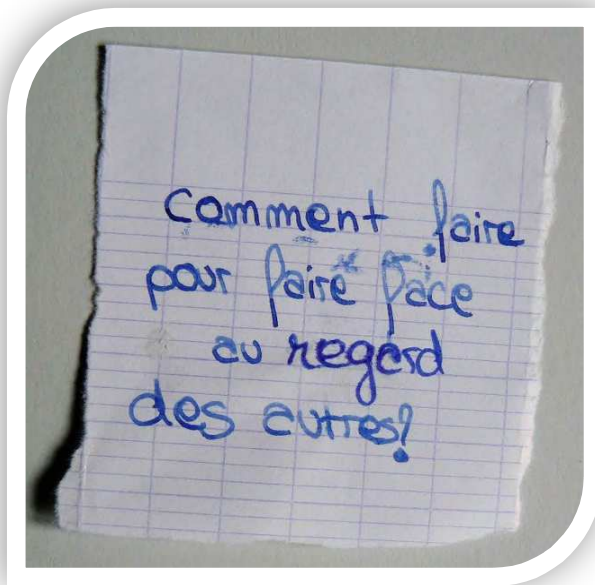 Comment faire
pour faire face
au regard
des autres?